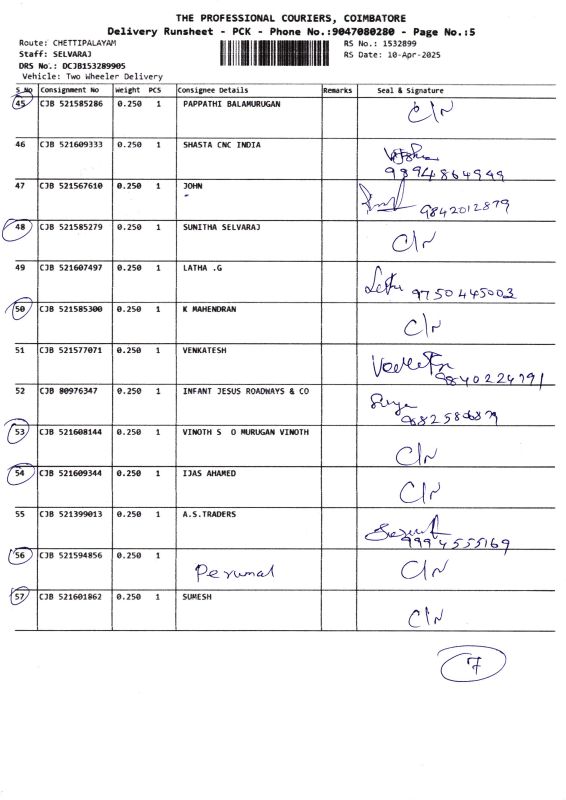 THE PROFESSIONAL COURIERS, COIMBATORE
Delivery Runsheet - PCK - Phone No.:9047080280 - Page No.:5
Route: CHETTIPALAYAM RS No.: 1532899
Staff: SELVARAJ RS Date: 10-Apr-2025
DRS No.: DCJB153289905
Vehicle: Two Wheeler Delivery
S_No Consignment No Weight PCS Consignee Details Remarks Seal & Signature
45 CJB 521585286 0.250 1 PAPPATHI BALAMURUGAN C/N
46 CJB 521609333 0.250 1 SHASTA CNC INDIA
9894864949
47 CJB 521567610 0.250 1 JOHN
9842012879
48 CJB 521585279 0.250 1 SUNITHA SELVARAJ C/N
49 CJB 521607497 0.250 1 LATHA .G
9750445003
50 CJB 521585300 0.250 1 K MAHENDRAN C/N
51 CJB 521577071 0.250 1 VENKATESH
9840224791
52 CJB 80976347 0.250 1 INFANT JESUS ROADWAYS & CO
53 CJB 521608144 0.250 1 VINOTH S O MURUGAN VINOTH C/N
54 CJB 521609344 0.250 1 IJAS AHAMED C/N
55 CJB 521399013 0.250 1 A.S.TRADERS
9994555169
56 CJB 521594856 0.250 1 Perumal C/N
57 CJB 521601862 0.250 1 SUMESH C/N
7